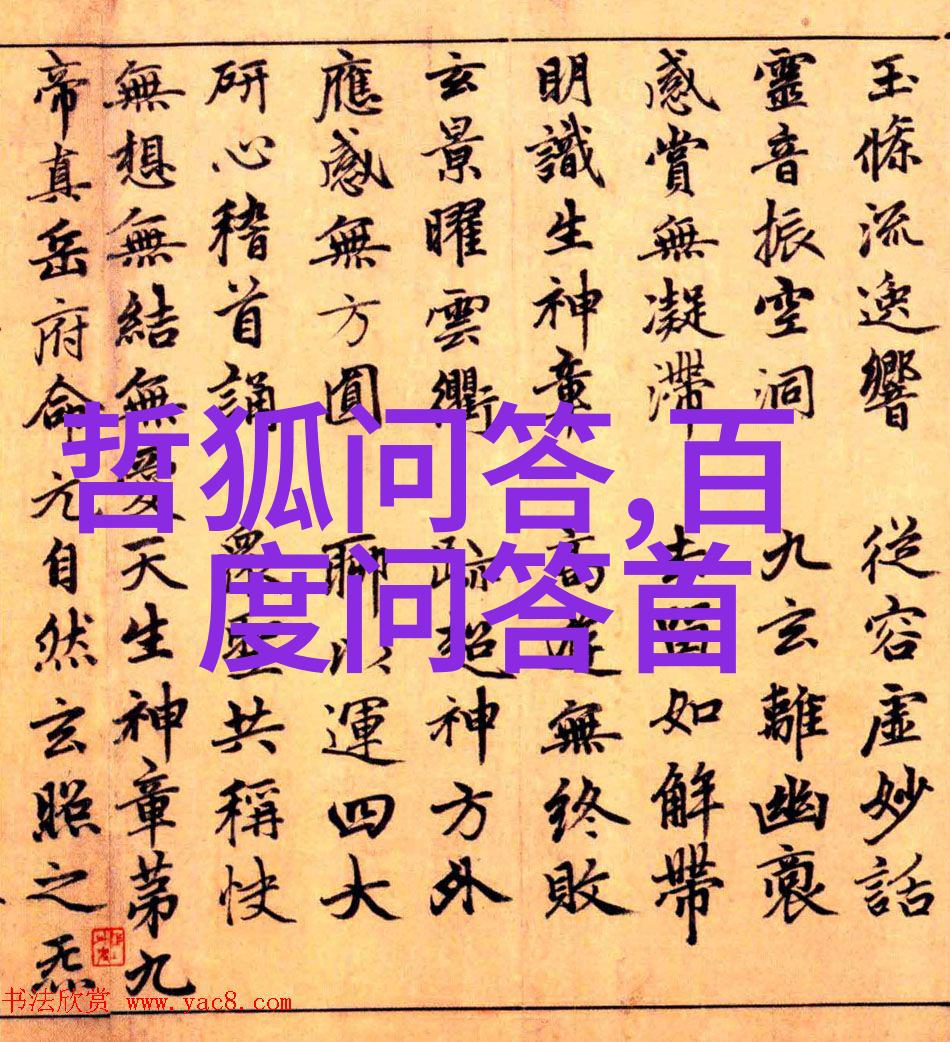 玉條流逸響 從容虛妙話
靈音振空洞 九玄離幽裔
感賞無凝滯 去留如解帶
明識生神章 高遊無終敗
玄景曜雲衢 疏超神方外
應感無方圓 聊以運四大
研心稽首誦 衆聖共稱快
無想無結無愛天生神章第九
帝真岳府命元自然玄照之炁
哲狐问答,百
度问答首
书法欣赏 www.yac8.com